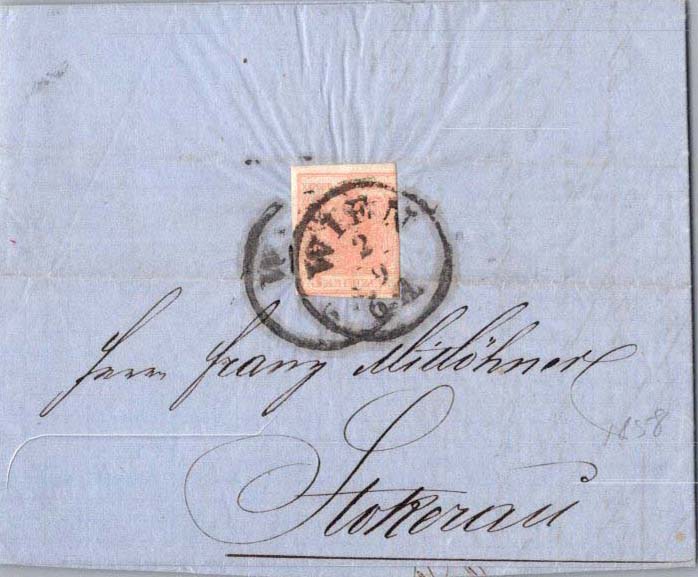 WIEN
2
9
6.A
W
Herrn Franz Mitlöhner
Stokerau
1858